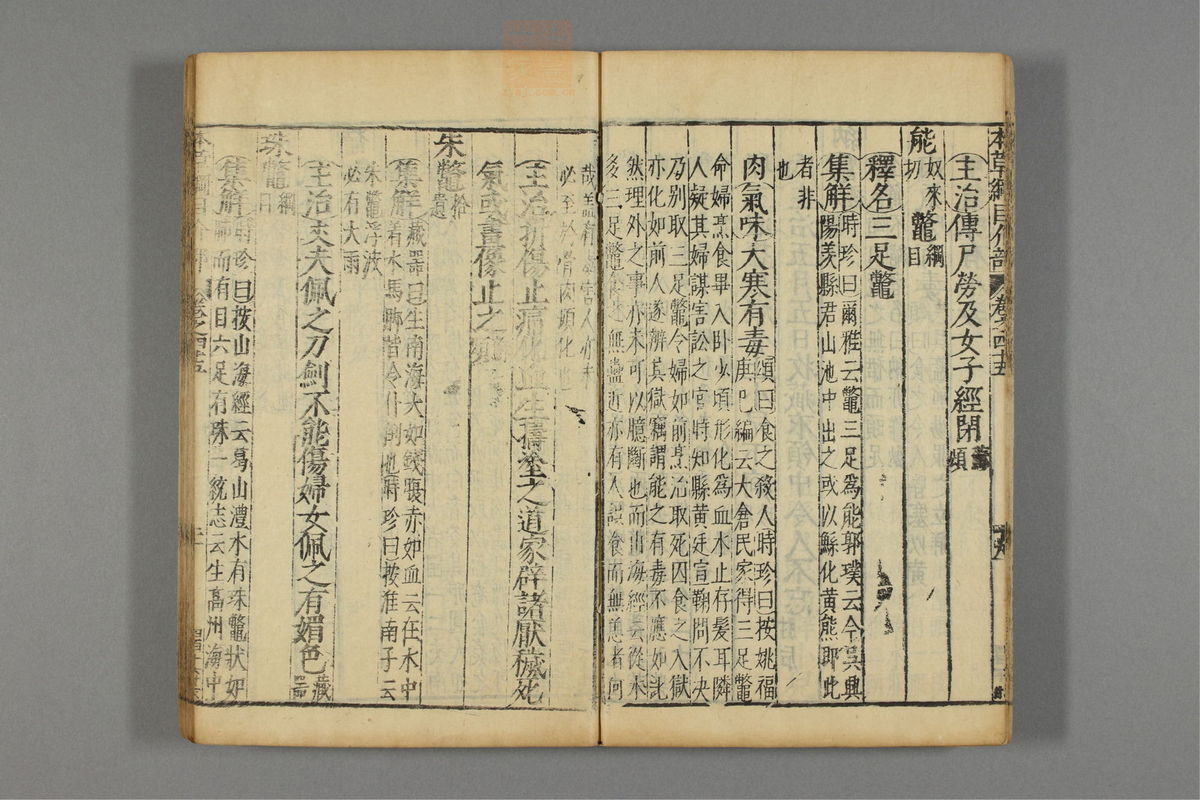 本草綱目介部 卷之四十五
主治傳尸勞及女子經閉蘇頌
能奴來切鼈綱目
釋名三足鼈
集解時珍曰爾雅云鼈三足為能郭璞云今吳興
陽羨縣君山池中出之或以鯀化黃熊即此
者非
也
肉氣味大寒有毒頌曰食之殺人時珍曰按姚福
庚巳編云太倉民家得三足鼈
命婦烹食畢入臥少頃形化為血水止存髮耳隣
人疑其婦謀害訟之官時知縣黃廷宣鞠問不決
乃別取三足鼈令婦如前烹治取死囚食之入獄
亦化如前人遂辨其獄竊謂能之有毒不應如此
然理外之事亦未可以臆斷也而山海經云從水
多三足鼈食之無蠱近亦有人誤食而無恙者何
哉蓋有毒害人亦未
必至於骨肉頓化也
主治折傷止痛化血生擣塗之道家辟諸厭穢死
氣或畫像止之
朱鼈拾遺
集解藏器曰生南海大如錢腹赤如血云在水中
着水馬脚皆令仆倒也時珍曰按淮南子云
朱鼈浮波
必有大雨
主治丈夫佩之刀劍不能傷婦女佩之有媚色藏器
珠鼈綱目
集解時珍曰按山海經云葛山澧水有珠鼈狀如
肺而有目六足有珠一統志云生高州海中
本草綱目介部 卷之四十五